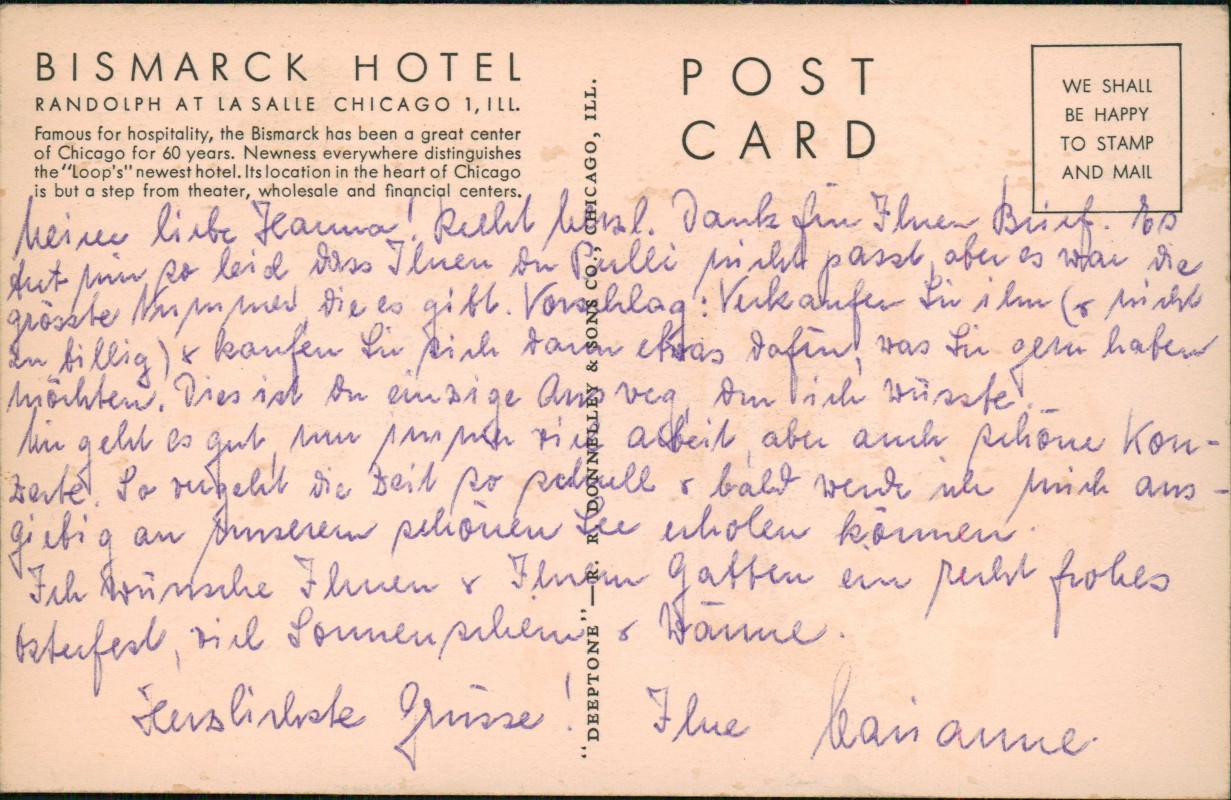 BISMARCK HOTEL
RANDOLPH AT LA SALLE CHICAGO 1, ILL.
Famous for hospitality, the Bismarck has been a great center
of Chicago for 60 years. Newness everywhere distinguishes
the "Loop's" newest hotel. Its location in the heart of Chicago
is but a step from theater, wholesale and financial centers.
POST
CARD
WE SHALL
BE HAPPY
TO STAMP
AND MAIL
"DEEPTONE"—R. R. DONNELLEY & SONS CO., CHICAGO, ILL.
Meine liebe Hanna! Recht herzl. Dank für Ihren Brief. Es
tut mir so leid dass Ihnen der Pulli nicht passt, aber es war die
grösste Nummer, die es gibt. Vorschlag: Verkaufen Sie ihn (& nicht
zu billig) & kaufen Sie sich dann etwas dafür, was Sie gern haben
möchten. Dies ist der einzige Ausweg, den ich wüsste.
Mir geht es gut, nur immer viel Arbeit, aber auch schöne Kon-
zerte. So vergeht die Zeit so schnell & bald werde ich mich aus-
giebig an unserem schönen See erholen können.
Ich wünsche Ihnen & Ihrem Gatten ein recht frohes
Osterfest, viel Sonnenschein & Wärme.
Herzlichste Grüsse! Ihre Marianne.